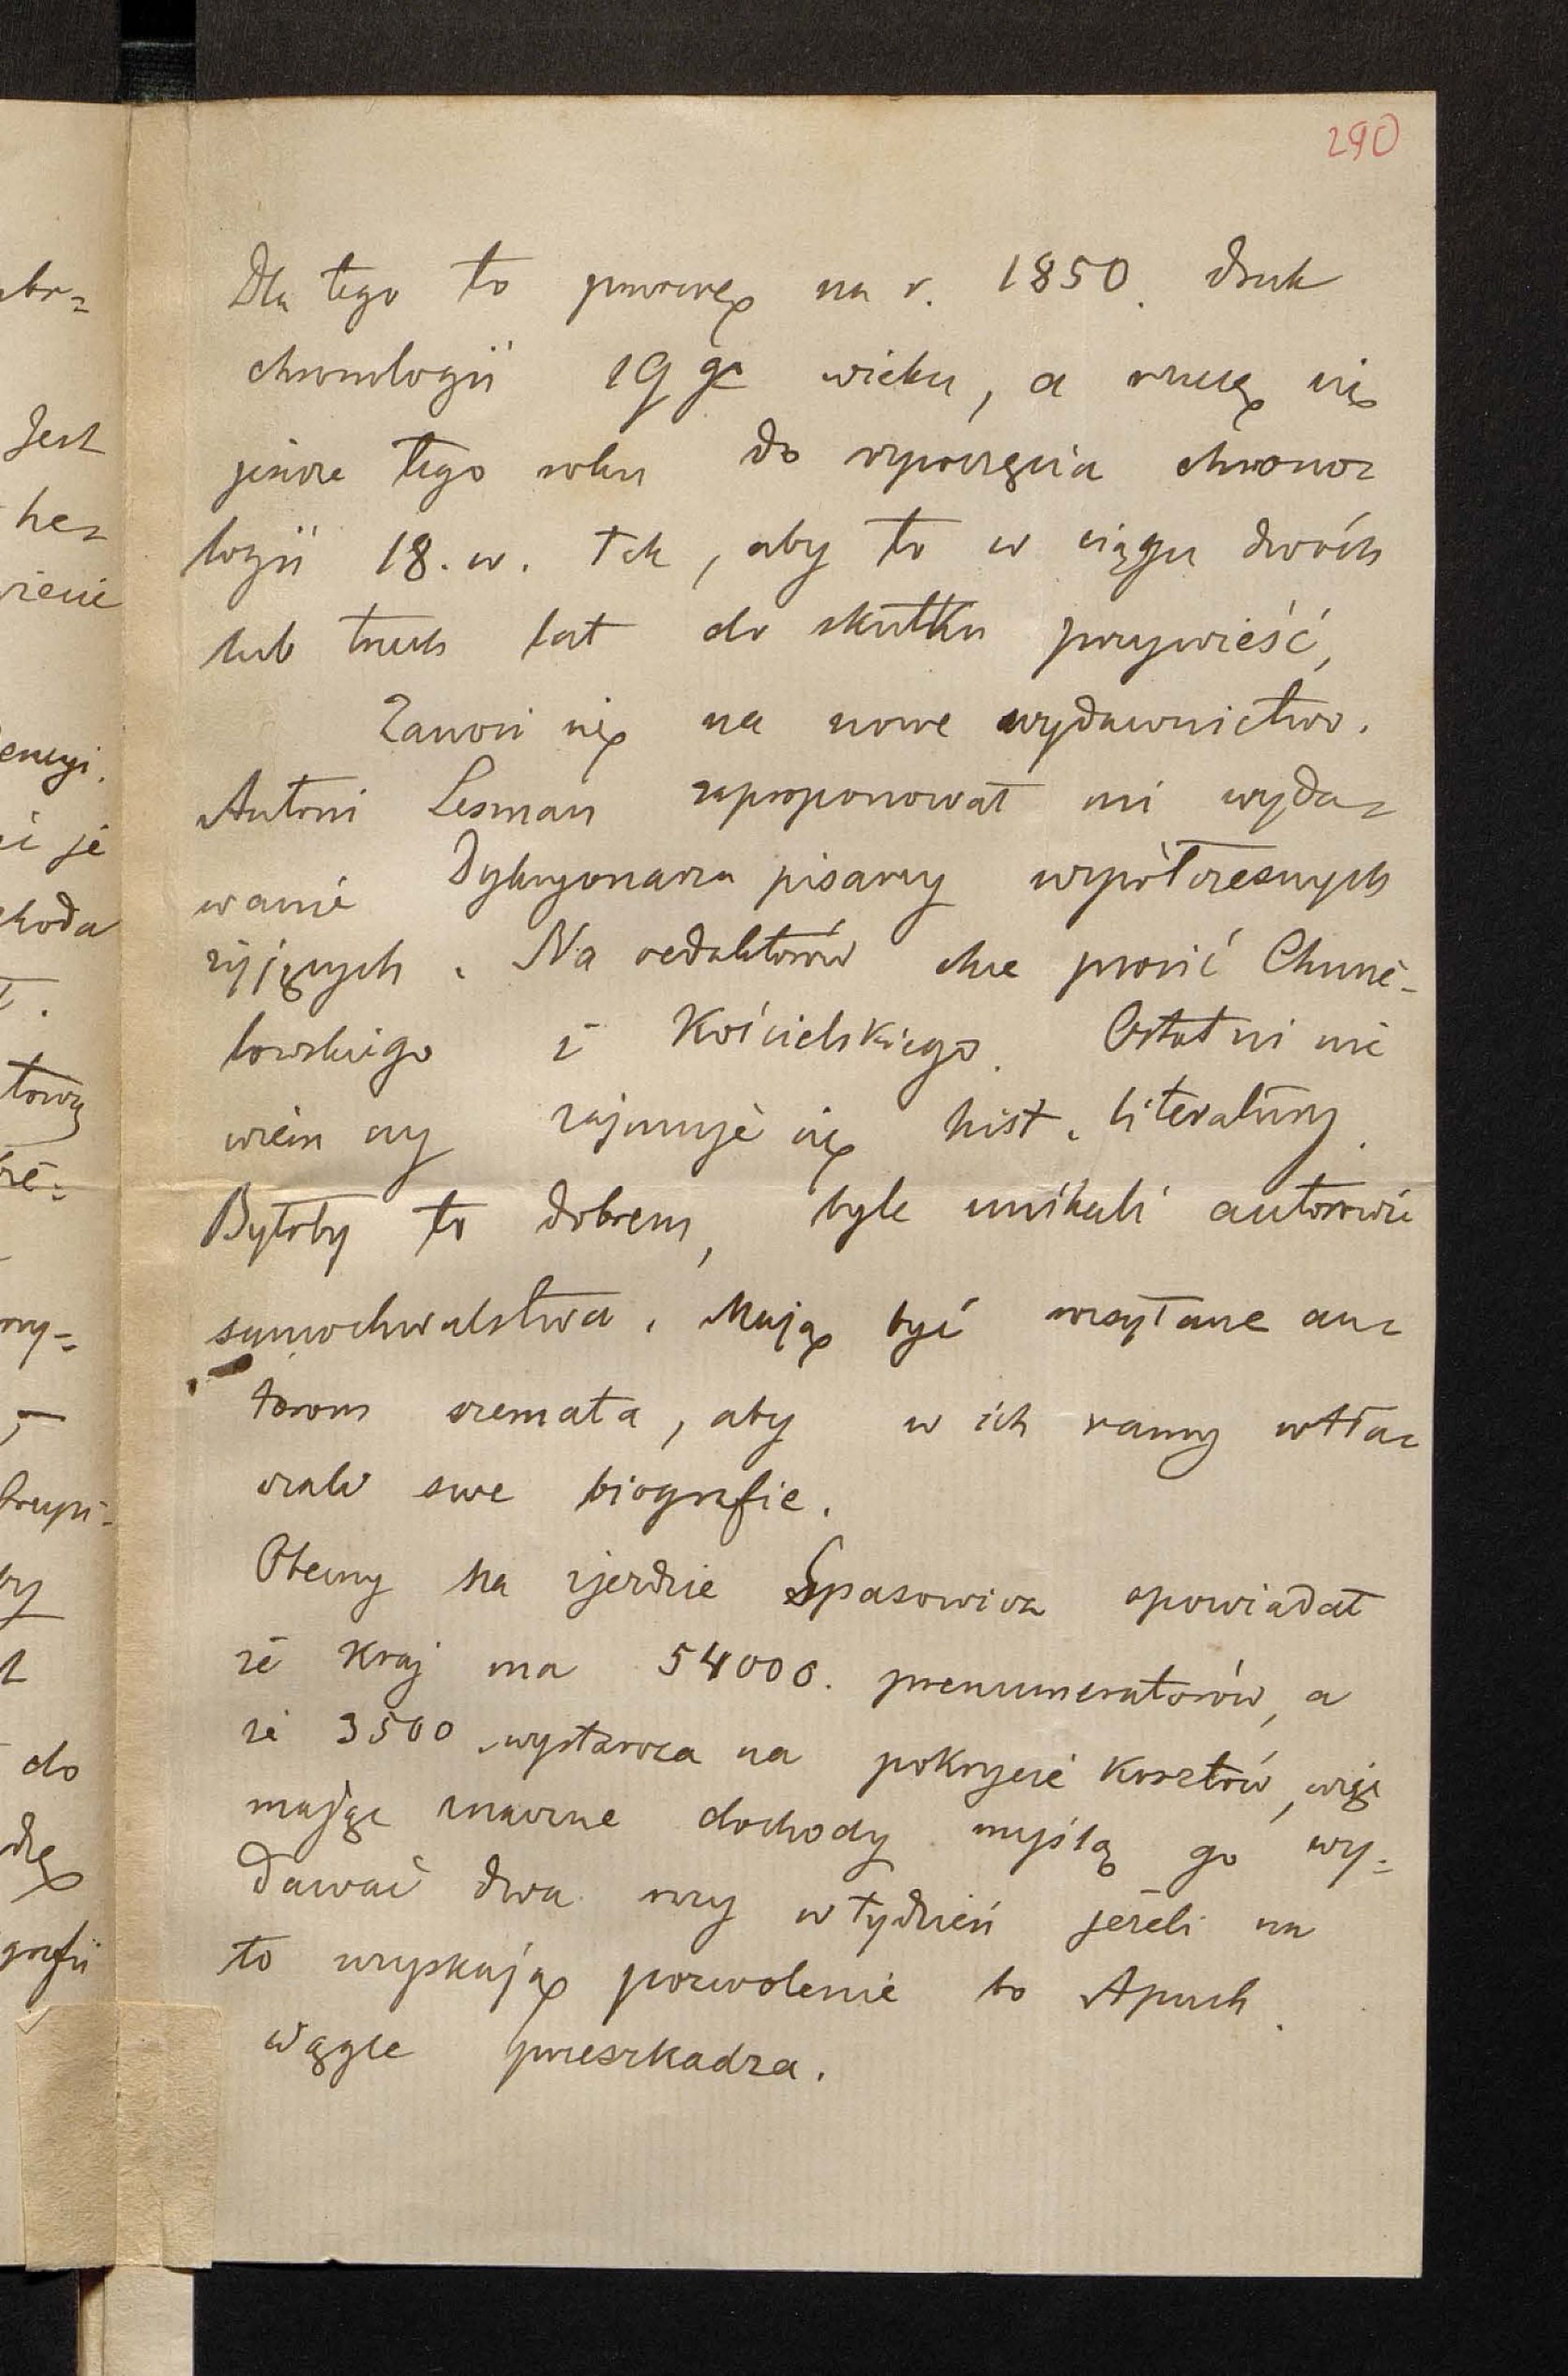 290
Dla tego to przerwę na r. 1850. druk
chronologii 19 go wieku, a rzucę się
jeszcze tego roku do rozpoczęcia chrono=
logii 18. w. tak, aby to w ciągu dwóch
lub trzech lat do skutku przywieść,
Zanosi się na nowe wydawnictwo.
Antoni Lesman zaproponował mi wyda=
wanie Dykcyonarza pisarzy współczesnych
żyjących. Na redaktorów chce prosić Chmie-
lowskiego i Kościelskiego. Ostatni nie
wiem czy zajmuje się hist. literatury.
Byłoby to dobrem, byle unikali autorowie
samochwalstwa. Mają być rozsyłane au=
torom szemata, aby w ich ramy wtła=
czali swe biografie.
Obecny na zjeździe Spasowicz opowiadał
że Kraj ma 54000. prenumeratorów, a
że 3500 wystarcza na pokrycie kosztów, więc
mając znaczne dochody myślą go wy=
dawać dwa razy w tydzień jeżeli na
to uzyskają pozwolenie bo Apuch.
wągle przeszkadza.